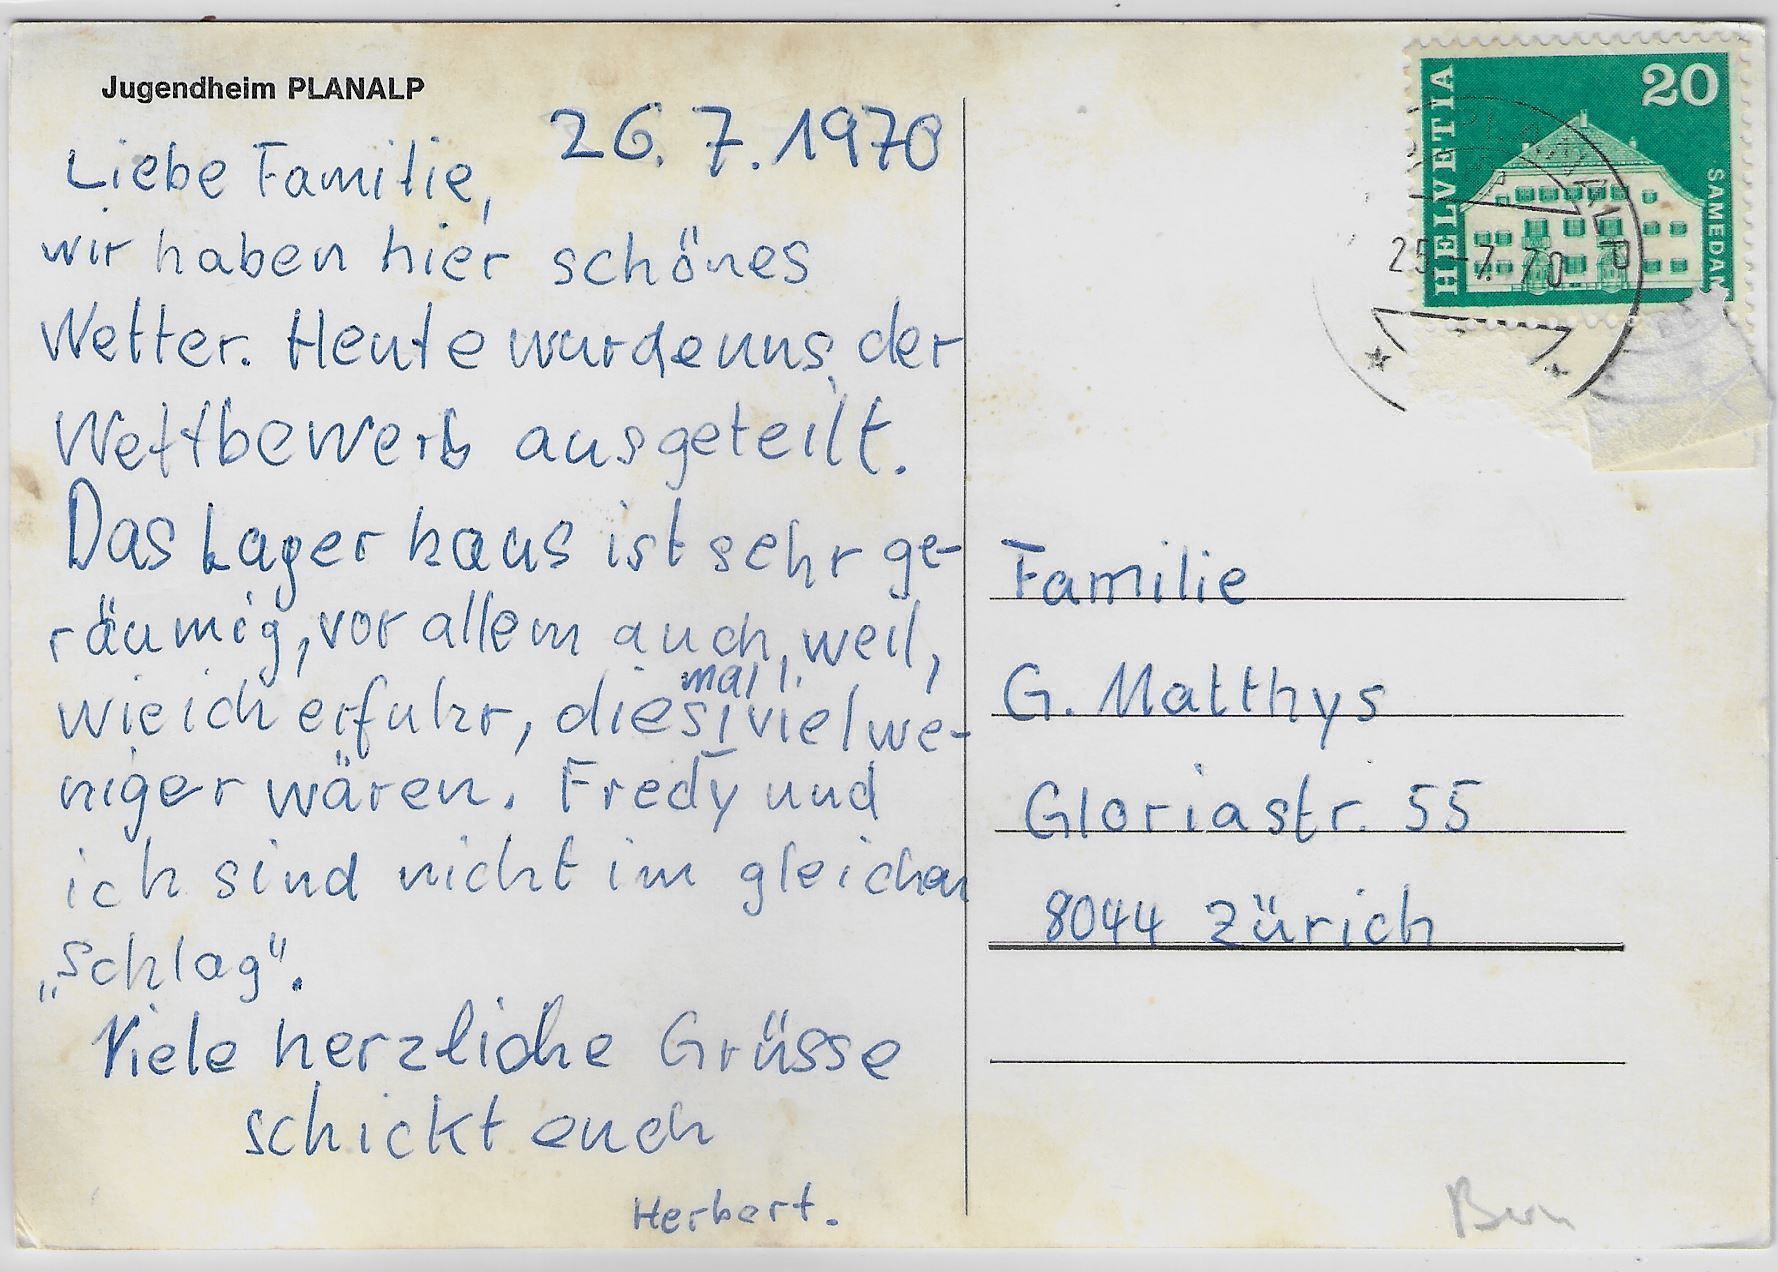 Jugendheim PLANALP
26. 7. 1970
Liebe Familie,
wir haben hier schönes
Wetter. Heute wurde uns der
Wettbewerb ausgeteilt.
Das Lagerhaus ist sehr ge-
räumig, vor allem auch, weil,
wie ich erfuhr, diesmal viel we-
niger wären. Fredy und
ich sind nicht im gleichen
„Schlag“.
Viele herzliche Grüsse
schickt euch
Herbert.
HELVETIA
20
SAMEDAN
PLANALP
25.-7.70
Familie
G. Matthys
Gloriastr. 55
8044 Zürich